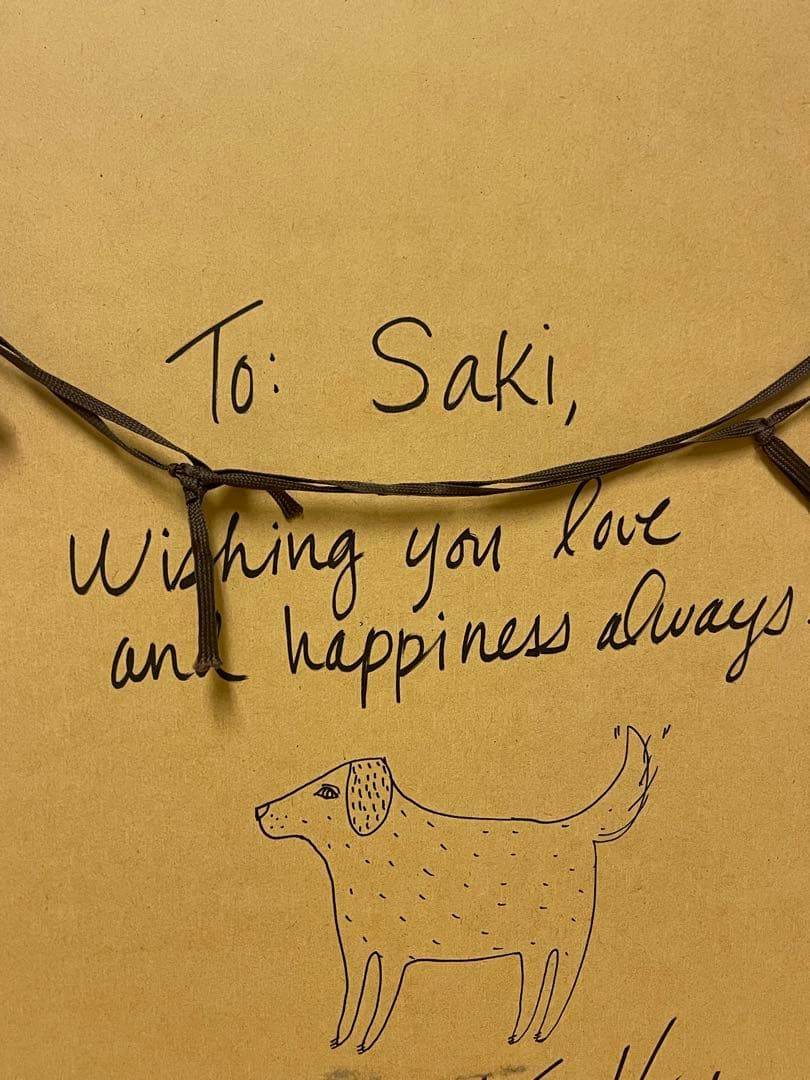 To: Saki,
Wishing you love
and happiness always.